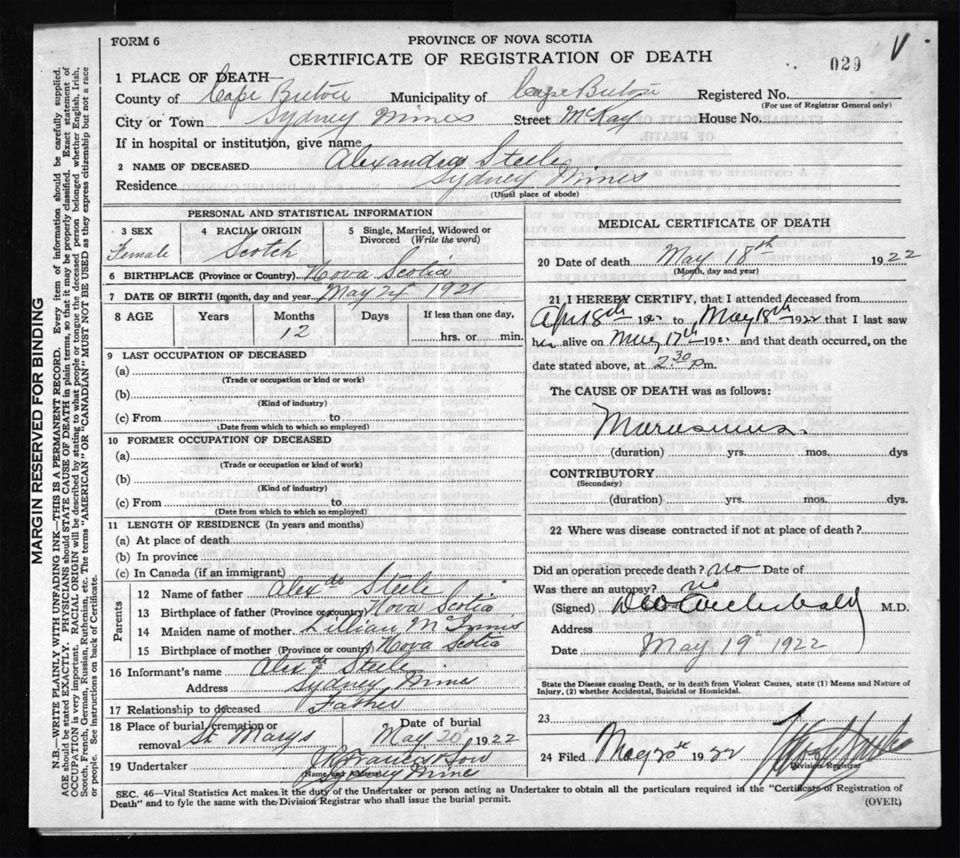 FORM 6
PROVINCE OF NOVA SCOTIA
CERTIFICATE OF REGISTRATION OF DEATH
029
V
1 PLACE OF DEATH—
County of Cape Breton Municipality of Cape Breton Registered No.
(For use of Registrar General only)
City or Town Sydney Mines Street McKay House No.
If in hospital or institution, give name
2 NAME OF DECEASED Alexandra Steele
Residence Sydney Mines
(Usual place of abode)
PERSONAL AND STATISTICAL INFORMATION
3 SEX
Female
4 RACIAL ORIGIN
Scotch
5 Single, Married, Widowed or
Divorced (Write the word)
6 BIRTHPLACE (Province or Country) Nova Scotia
7 DATE OF BIRTH (month, day and year) May 24 1921
8 AGE Years Months Days If less than one day,
12 hrs. or min.
9 LAST OCCUPATION OF DECEASED
(a)
(Trade or occupation or kind of work)
(b)
(Kind of industry)
(c) From to
(Date from which to which so employed)
10 FORMER OCCUPATION OF DECEASED
(a)
(Trade or occupation or kind of work)
(b)
(Kind of industry)
(c) From to
(Date from which to which so employed)
11 LENGTH OF RESIDENCE (In years and months)
(a) At place of death
(b) In province
(c) In Canada (if an immigrant)
Parents
12 Name of father Alexdr Steele
13 Birthplace of father (Province or country) Nova Scotia
14 Maiden name of mother Lillian McInnis
15 Birthplace of mother (Province or country) Nova Scotia
16 Informant's name Alexdr Steele
Address Sydney Mines
17 Relationship to deceased Father
18 Place of burial, cremation or
removal St Marys
Date of burial
May 20 1922
19 Undertaker
(Name and Address)
Sydney Mines
MEDICAL CERTIFICATE OF DEATH
20 Date of death May 18th 1922
(Month, day and year)
21 I HEREBY CERTIFY, that I attended deceased from
Apr 18th 1922 to May 18th 1922 that I last saw
her alive on May 17th 1922 and that death occurred, on the
date stated above, at 2.30 p.m.
The CAUSE OF DEATH was as follows:
Marasmus.
(duration) yrs. mos. dys
CONTRIBUTORY
(Secondary)
(duration) yrs. mos. dys.
22 Where was disease contracted if not at place of death?
Did an operation precede death? no Date of
Was there an autopsy? no
(Signed) Archibald M.D.
Address
Date May 19th 1922
State the Disease causing Death, or in death from Violent Causes, state (1) Means and Nature of
Injury, (2) whether Accidental, Suicidal or Homicidal.
23
24 Filed May 20th 1922
Division Registrar
SEC. 46—Vital Statistics Act makes it the duty of the Undertaker or person acting as Undertaker to obtain all the particulars required in the "Certificate of Registration of
Death" and to fyle the same with the Division Registrar who shall issue the burial permit.
(OVER)
MARGIN RESERVED FOR BINDING
N.B.—WRITE PLAINLY WITH UNFADING INK—THIS IS A PERMANENT RECORD. Every item of information should be carefully supplied.
AGE should be stated EXACTLY. PHYSICIANS should STATE CAUSE OF DEATH in plain terms, so that it may be properly classified. Exact statement of
OCCUPATION is very important. RACIAL ORIGIN will be described by stating to what people or tongue the deceased person belonged whether English, Irish,
Scotch, French, German, Russian, Ruthenian, etc. The terms "AMERICAN" OR "CANADIAN" MUST NOT BE USED as they express citizenship but not a race
or people. See instructions on back of Certificate.